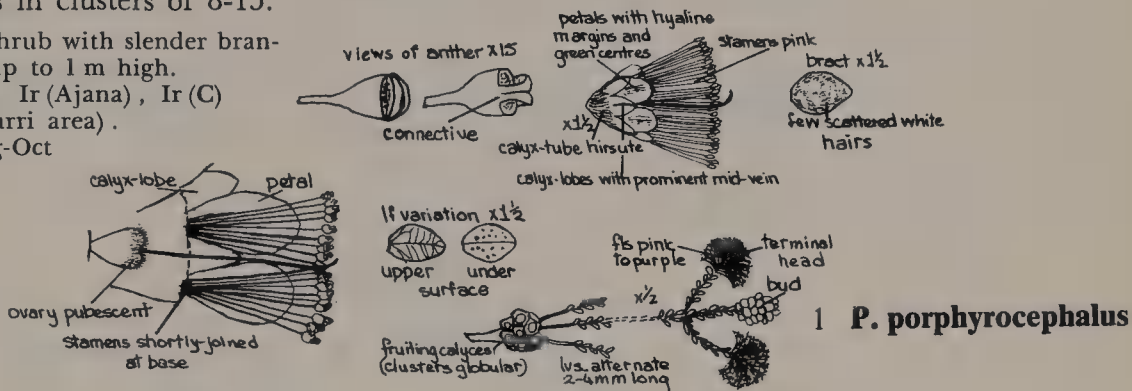 s in clusters of 8-15.
hrub with slender bran-
up to 1 m high.
Ir (Ajana) , Ir (C)
urri area) .
g-Oct
views of anther x15
connective
petals with hyaline
margins and
green centres
stamens pink
x1½
calyx-tube hirsute
calyx-lobes with prominent mid-vein
bract x1½
few scattered white
hairs
calyx-lobe
petal
ovary pubescent
stamens shortly-joined
at base
lf variation x1½
upper under
surface
fls pink
to purple
terminal
head
bud
x½
fruiting calyces
(clusters globular)
lvs. alternate
2-4mm long
1 P. porphyrocephalus